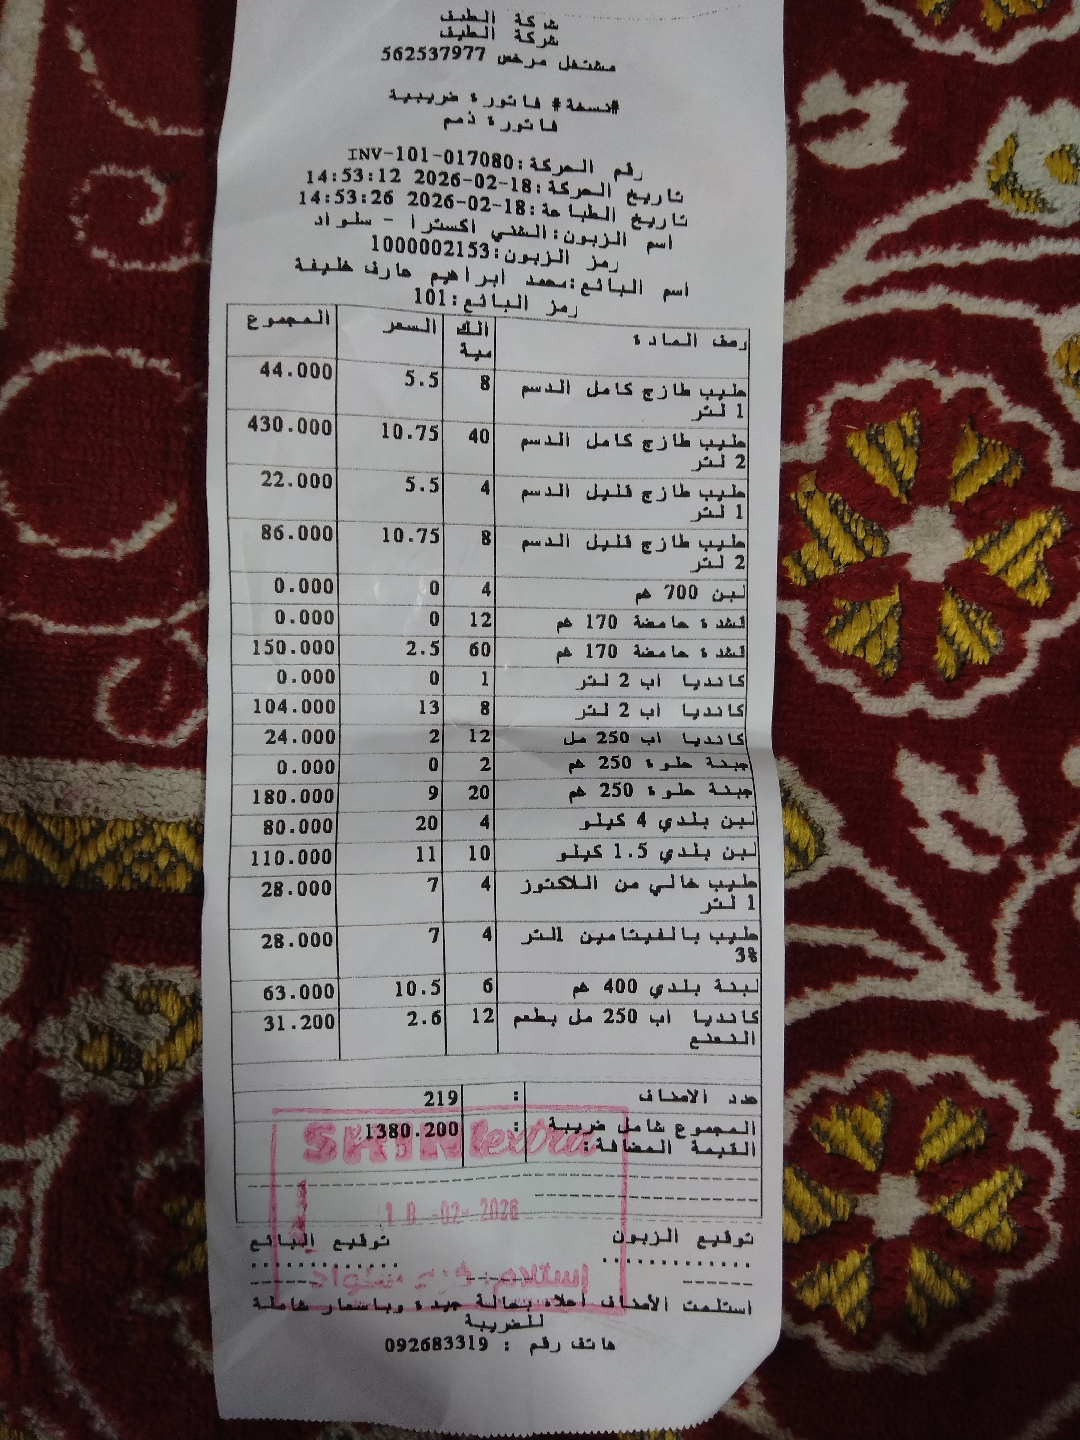 شركة الطيف
شركة الطيف
مشتغل مرخص 562537977
#نسخة# فاتورة ضريبية
فاتورة ذمم
رقم الحركة:INV-101-017080
تاريخ الحركة:18-02-2026 14:53:12
تاريخ الطباعة:18-02-2026 14:53:26
اسم الزبون:الشني اكسترا - سلواد
رمز الزبون:1000002153
اسم البائع:محمد ابراهيم عارف خليفة
رمز البائع:101
وصف المادة الكمية السعر المجموع
حليب طازج كامل الدسم 1 لتر 8 5.5 44.000
حليب طازج كامل الدسم 2 لتر 40 10.75 430.000
حليب طازج قليل الدسم 1 لتر 4 5.5 22.000
حليب طازج قليل الدسم 2 لتر 8 10.75 86.000
لبن 700 غم 4 0 0.000
قشدة حامضة 170 غم 12 0 0.000
قشدة حامضة 170 غم 60 2.5 150.000
كانديا اب 2 لتر 1 0 0.000
كانديا اب 2 لتر 8 13 104.000
كانديا اب 250 مل 12 2 24.000
جبنة حلوة 250 غم 2 0 0.000
جبنة حلوة 250 غم 20 9 180.000
لبن بلدي 4 كيلو 4 20 80.000
لبن بلدي 1.5 كيلو 10 11 110.000
حليب خالي من اللاكتوز 1 لتر 4 7 28.000
حليب بالفيتامين 1لتر 3% 4 7 28.000
لبنة بلدي 400 غم 6 10.5 63.000
كانديا اب 250 مل بطعم النعنع 12 2.6 31.200
عدد الاصناف : 219
المجموع شامل ضريبة القيمة المضافة: : 1380.200
SHINI extra
18-02-2026
توقيع الزبون توقيع البائع
إستلام فرع سلواد
استلمت الأصناف أعلاه بحالة جيدة وباسعار شاملة
للضريبة
هاتف رقم : 092683319